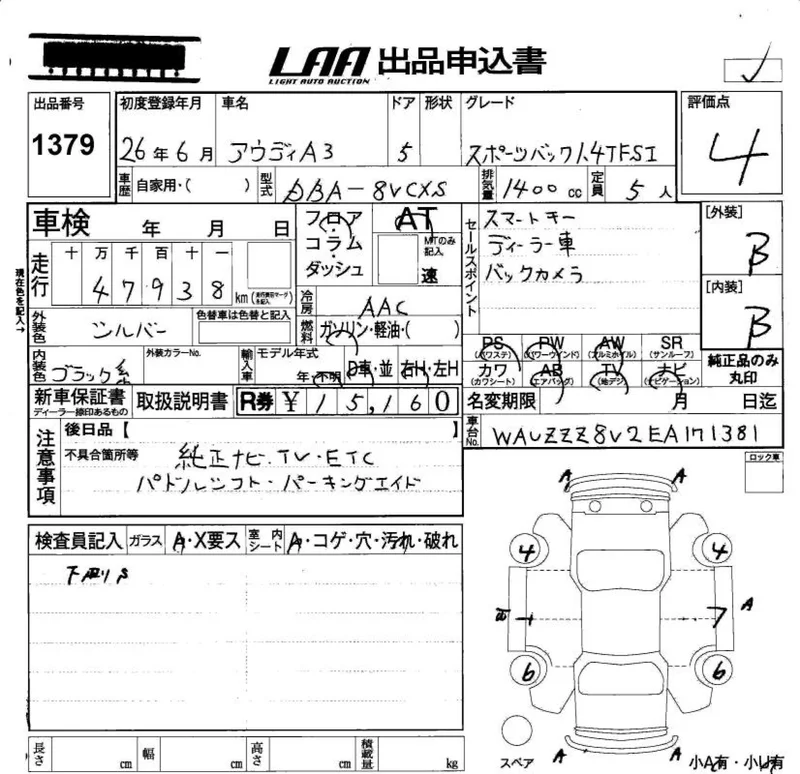 LAA 出品申込書
LIGHT AUTO AUCTION
出品番号 初度登録年月 車名 ドア 形状 グレード 評価点
1379 26年6月 アウディA3 5 スポーツバック1.4TFSI 4
車歴 自家用・( ) 型式 DBA-8VCXS 排気量 1400cc 定員 5人
車検 年 月 日 フロア AT セールスポイント スマートキー [外装]
コラム MTのみ記入 ディーラー車 B
走行 十 万 千 百 十 一 ダッシュ 速 バックカメラ
現在色を記入→ 47938 km (走行換算マーク)を記入 冷房 AAC [内装]
外装色 シルバー 色替車は色替と記入 燃料 ガソリン・軽油・( ) B
PS (パワステ) PW (パワーウインド) AW (アルミホイル) SR (サンルーフ) 純正品のみ丸印
内装色 ブラック系 外装カラーNo. 輸入車 モデル年式 年・不明 D車・並 右H・左H
カワ (カワシート) AB (エアバッグ) TV (地デジ) ナビ (ナビゲーション)
新車保証書 ディーラー捺印あるもの 取扱説明書 R券 ¥ 15,160 名変期限 月 日迄
注意事項 後日品【 】 車台No. WAUZZZ8V2EA171381
不具合箇所等 純正ナビ・TV・ETC ロック車
パドルシフト・パーキングエイド
検査員記入 ガラス A・X要ス 室内シート A・コゲ・穴・汚れ・破れ
A A
4 4
A
7
6 6
A A
スペア 小A有・小U有
長さ cm 幅 cm 高さ cm 積載量 kg